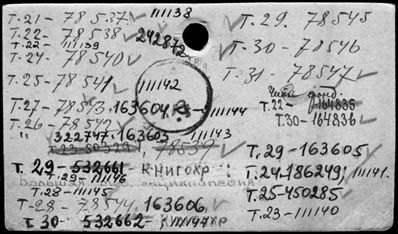 Т.21-78537 111138
Т.22-78538 242872
Т.22-111139
Т.24-78540
Т.25-78541 111142
Т.27-78543. 163604 111144
Т.26-78542
" 322747. 163603 111143
78539
Т. 29-532661-Книгохр:
Т.29-111146
Т.28-111145
Т-28-78544, 163606
Т. 30-532662 111147
Т.29. 78545
Т-30-78546
Т-31-78547
фонд.
Т.22-164835
Т.30-164836
Т.29-163605
Т.24-186249; 111141.
Т.25-450285
Т.23-111140